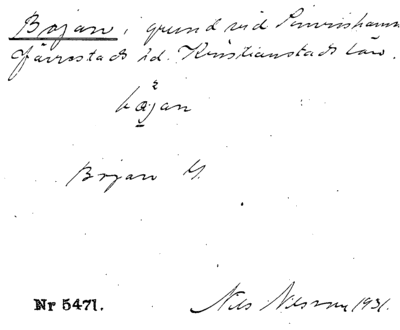 Bojan, grund vid Simrishamn
Järrestads hd. Kristianstads län.
Bojan
Nr 5471.
Nils Nilsson 1931.